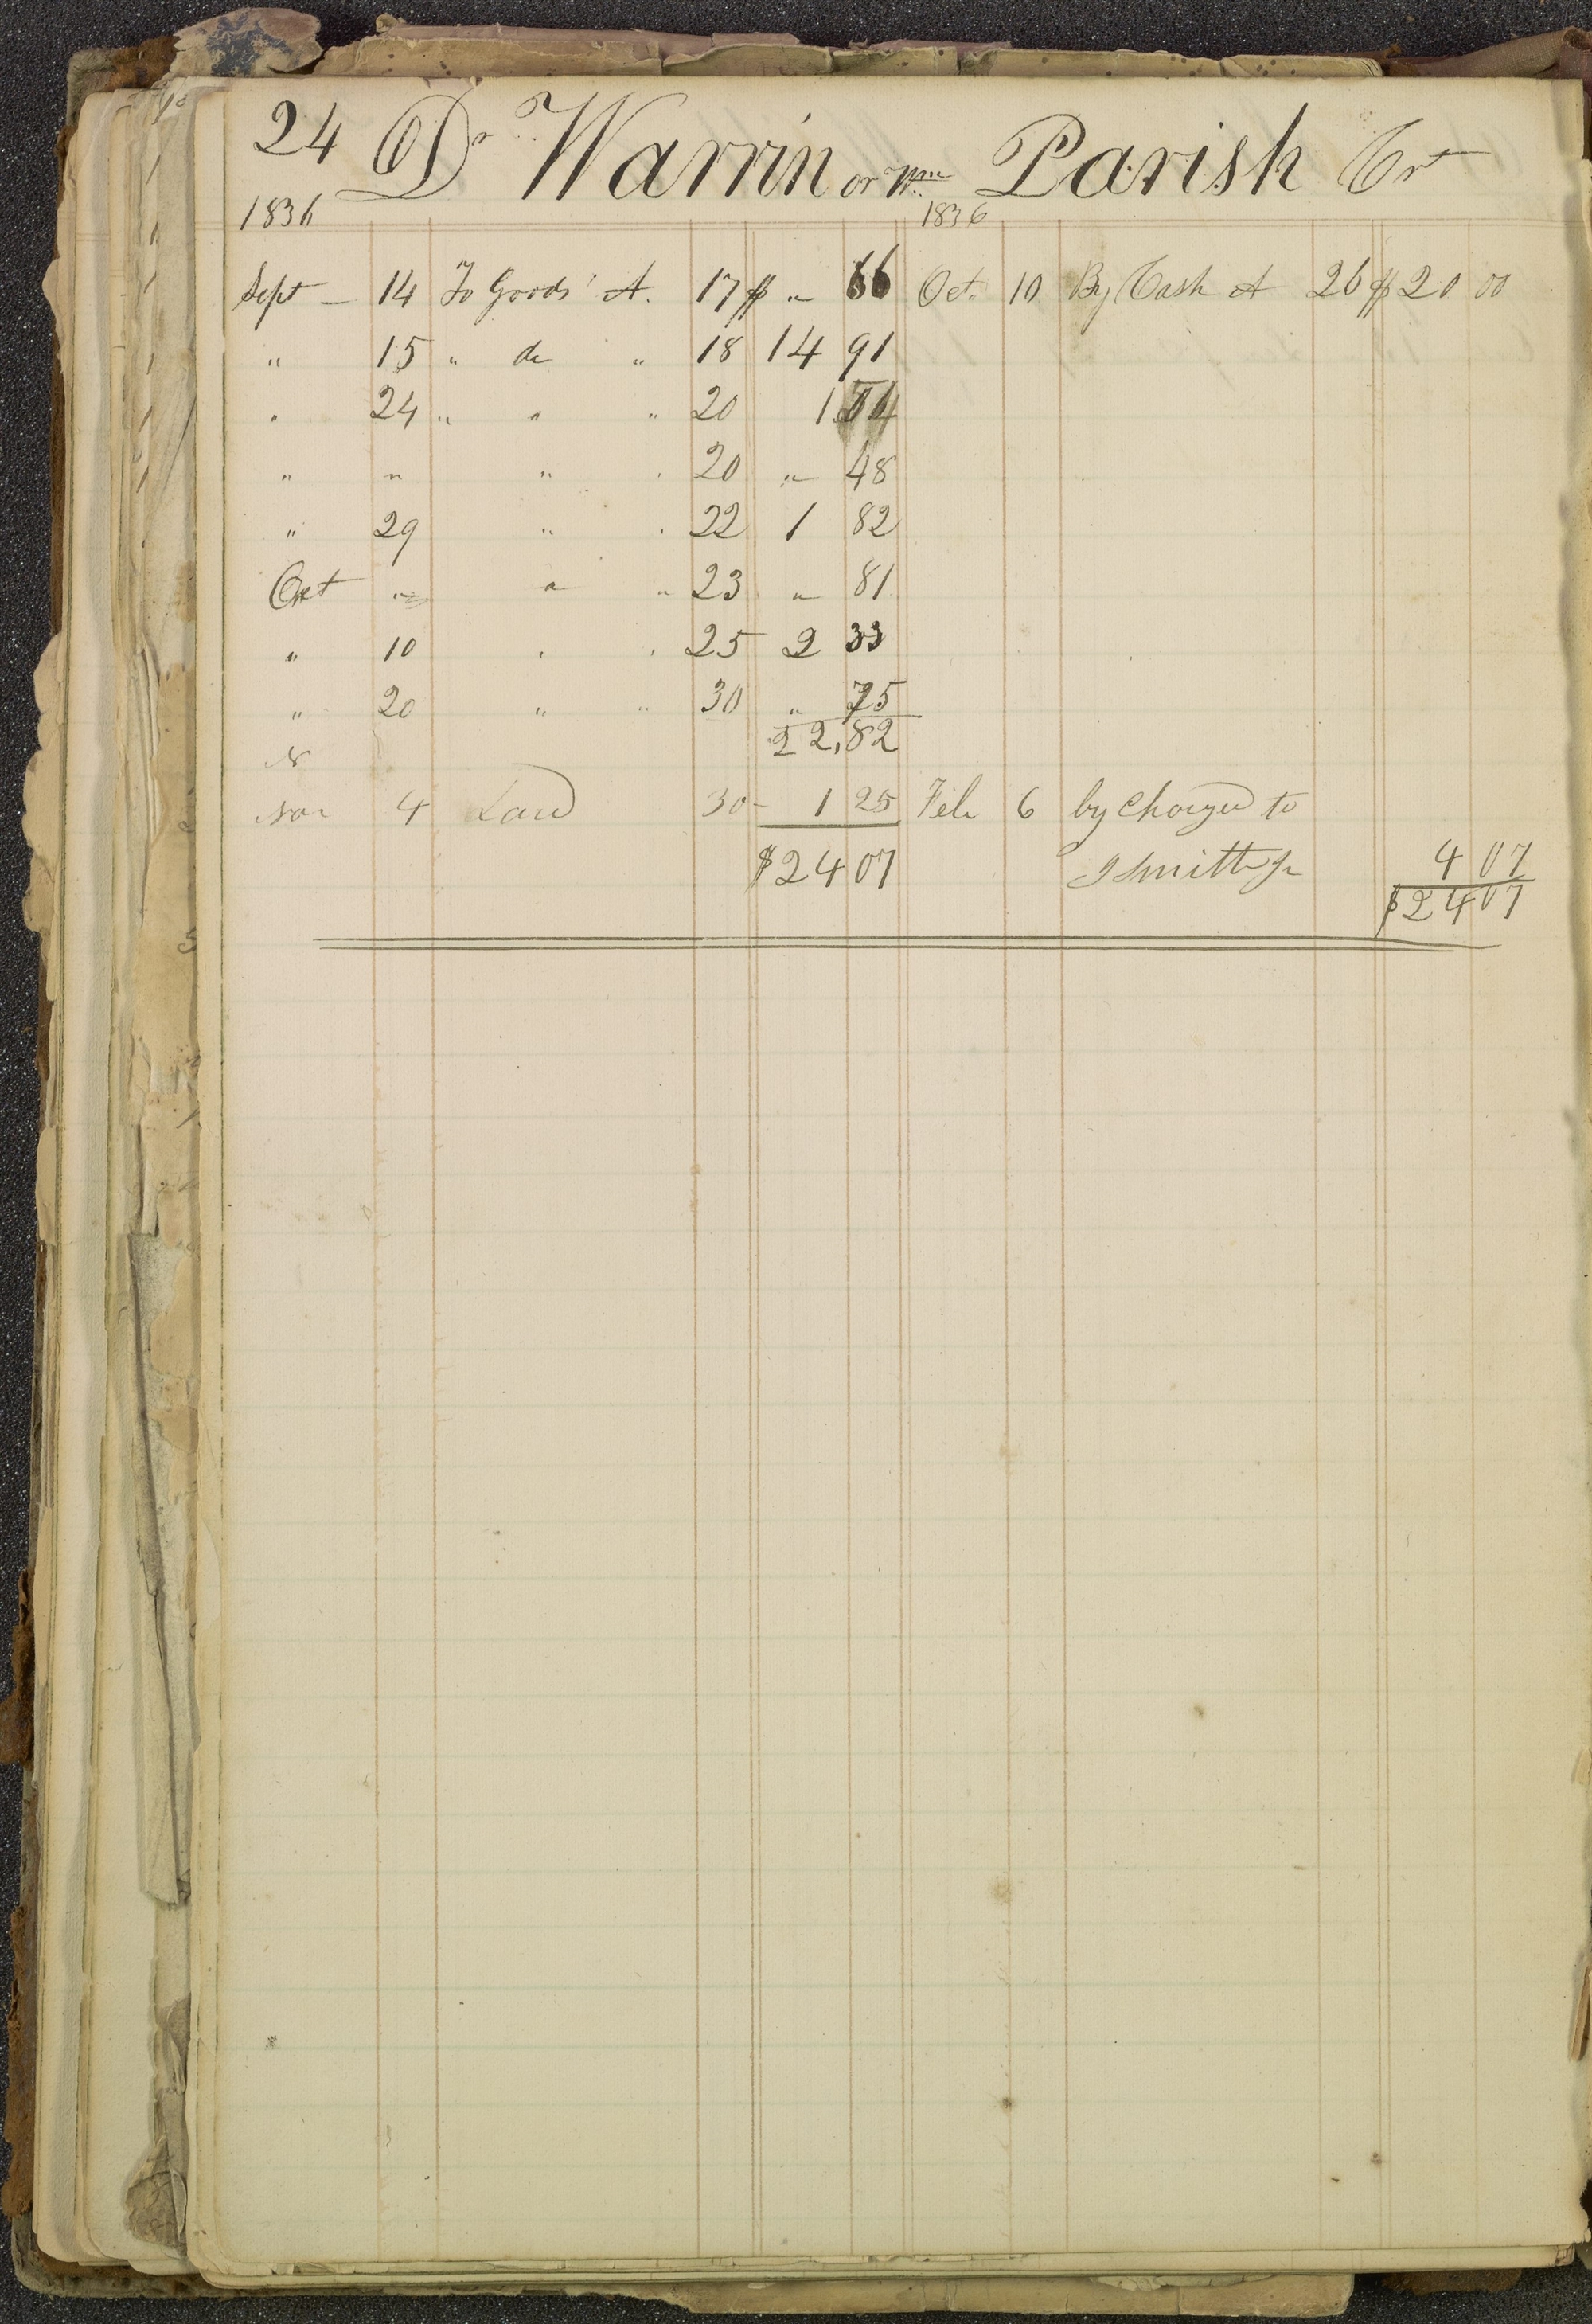 24 Dr Warrin or Wm Parish Cr
1836 1836
Sept 14 To Goods A. 17 $ " 66 Oct. 10 By Cash A 26 $20 00
" 15 " do " 18 14 91
" 24 " " " 20 1
" " " " 20 " 48
" 29 " " 22 1 82
Oct " " " 23 " 81
" 10 " " 25 2 33
" 20 " " 30 " 75
22,82
N
Nov 4 Lard 30 - 1 25 Feb 6 by Charged to
$24 07 J Smith Jr 4 07
$24 07